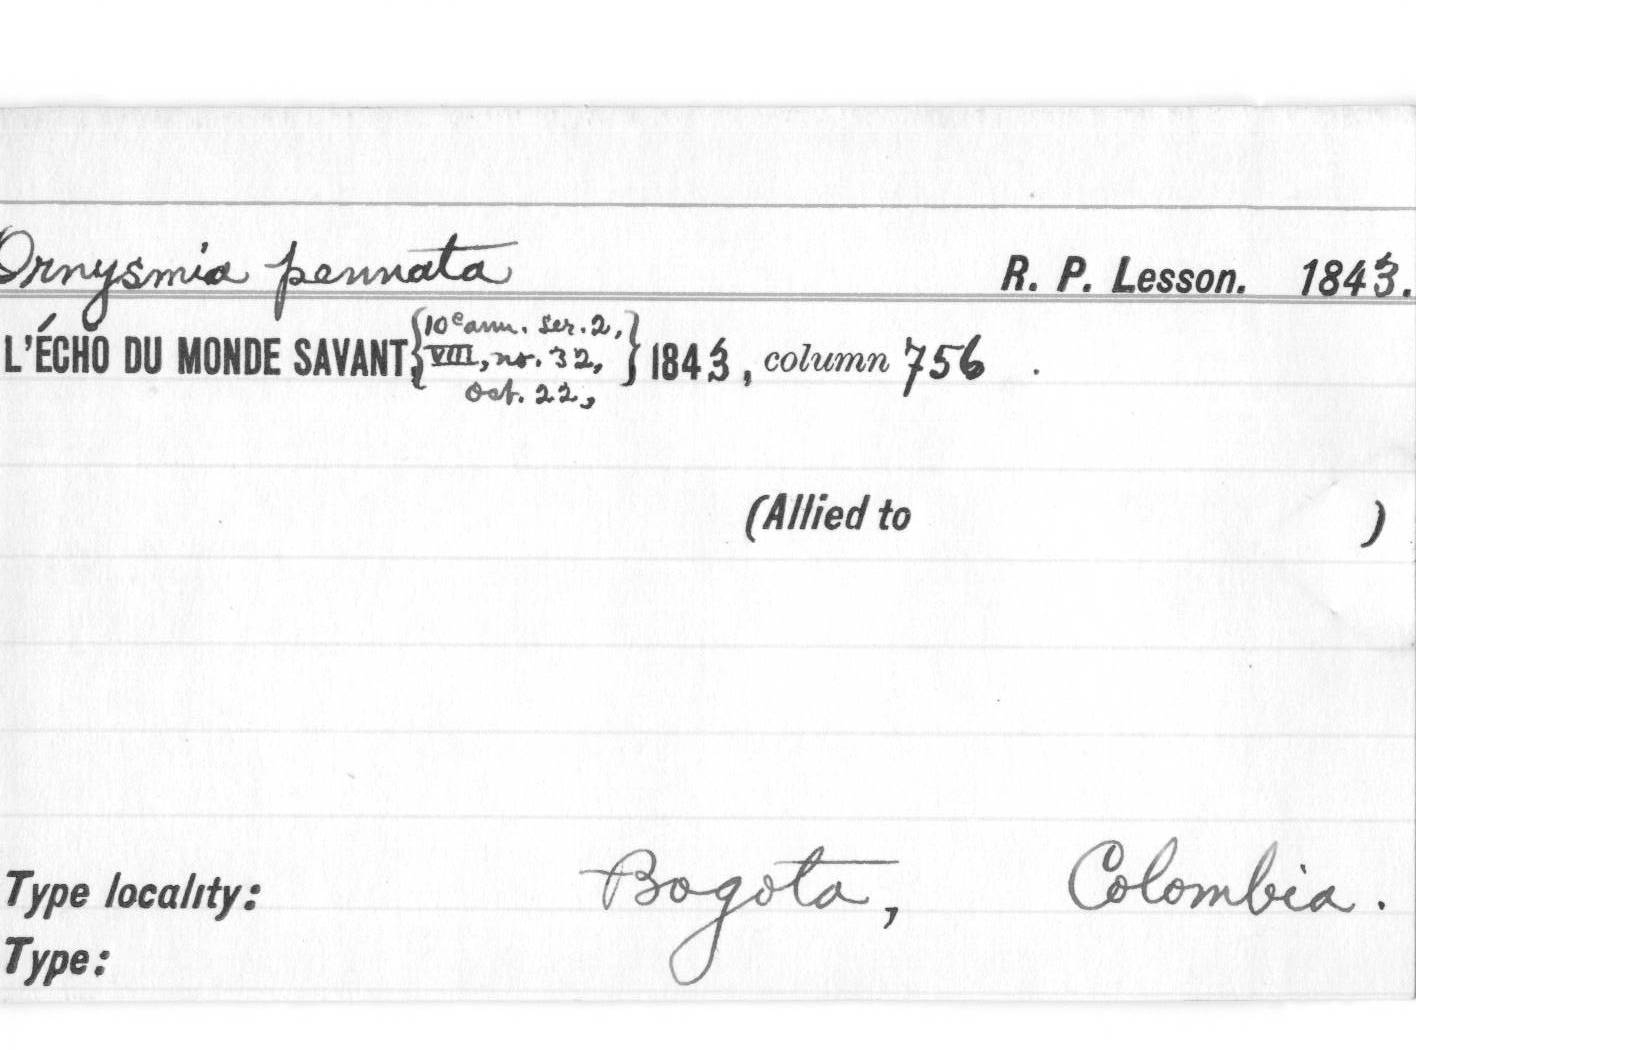 Ornysmia pennata R. P. Lesson. 1843.
L'ÉCHO DU MONDE SAVANT, {10e ann. ser. 2, VIII, no. 32, Oct. 22,} 1843, column 756 .
(Allied to )
Type locality: Bogota, Colombia.
Type: